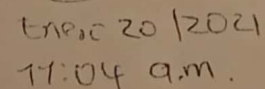 Enero 20/2021
11:04 a.m.